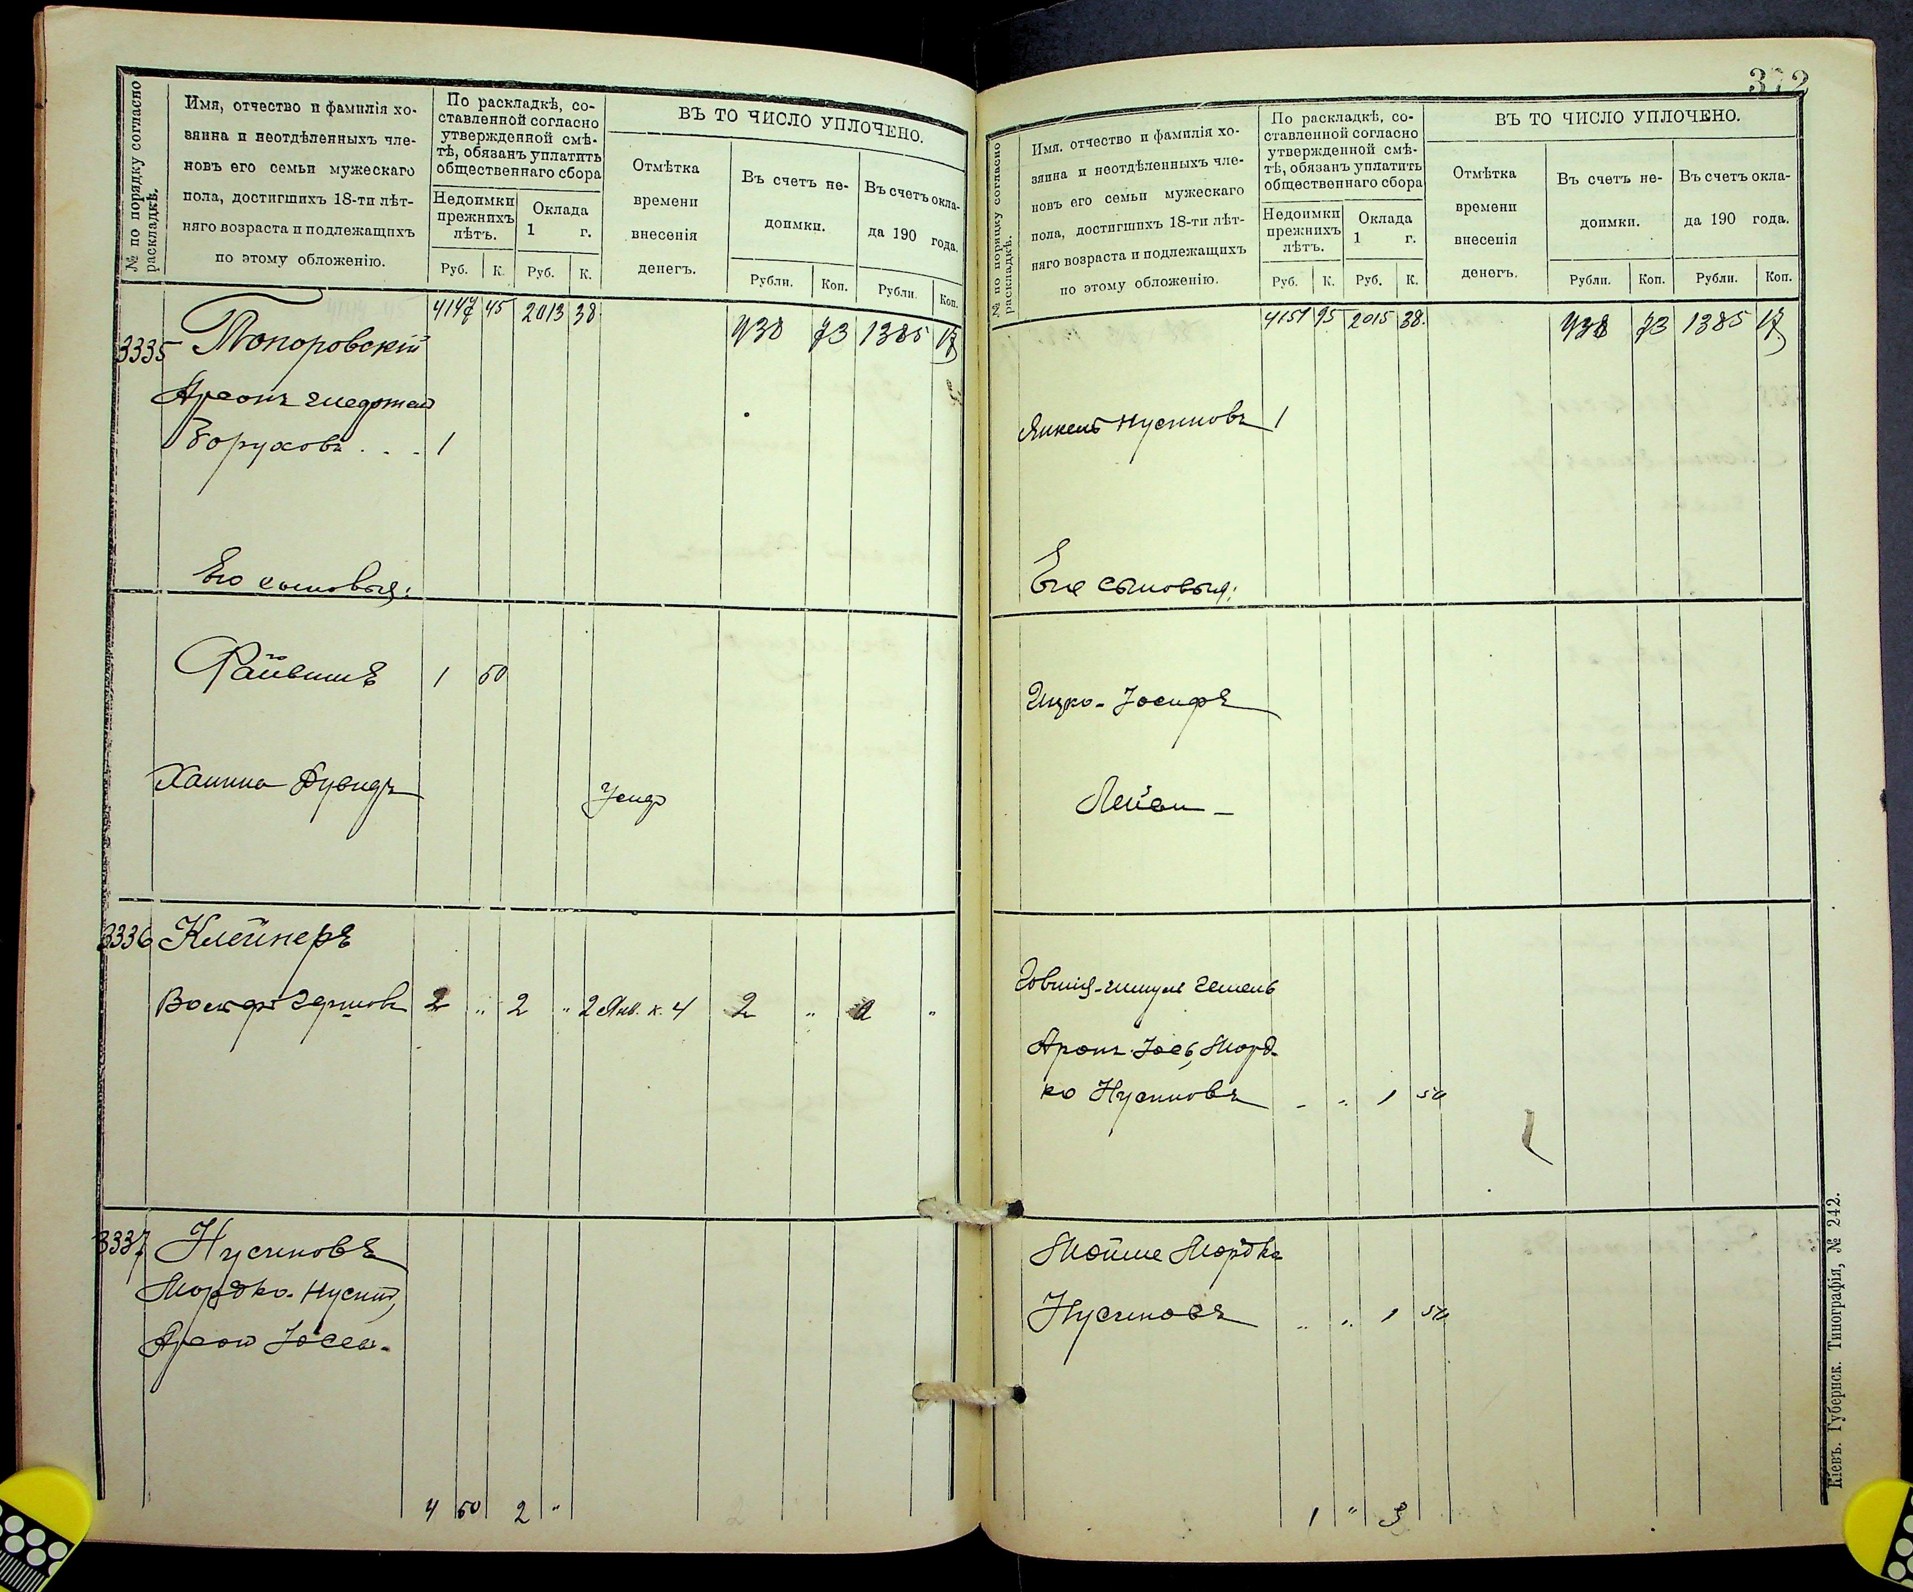 № по порядку согласно
раскладкѣ.
Имя, отчество и фамилія хо-
зяина и неотдѣленныхъ чле-
новъ его семьи мужескаго
пола, достигшихъ 18-ти лѣт-
няго возраста и подлежащихъ
по этому обложенію.
По раскладкѣ, со-
ставленной согласно
утвержденной смѣ-
тѣ, обязанъ уплатить
общественнаго сбора
Недоимки
прежнихъ
лѣтъ.
Оклада
1 г.
Руб. К. Руб. К.
ВЪ ТО ЧИСЛО УПЛОЧЕНО.
Отмѣтка
времени
внесенія
денегъ.
Въ счетъ не-
доимки.
Въ счетъ окла-
да 190 года.
Рубли. Коп. Рубли. Коп.
4147 45 2013 38 938 73 1385 17
3335 Топоровскій
Боруховъ . . . 1
Его сыновья:
Файвишъ 1 50
Хаимъ Дувидъ
3336 Клейнеръ
Гершовъ 2 " 2 " 2 Янв. к. 4 2 " 2 "
3337 Нусиновъ
Мордко-Нусинъ,
Аронъ Іосел-
4 50 2 "
372
№ по порядку согласно
раскладкѣ.
Имя. отчество и фамилія хо-
зяина и неотдѣленныхъ чле-
новъ его семьи мужескаго
пола, достигшихъ 18-ти лѣт-
няго возраста и подлежащихъ
по этому обложенію.
По раскладкѣ, со-
ставленной согласно
утвержденной смѣ-
тѣ, обязанъ уплатить
общественнаго сбора
Недоимки
прежнихъ
лѣтъ.
Оклада
1 г.
Руб. К. Руб. К.
ВЪ ТО ЧИСЛО УПЛОЧЕНО.
Отмѣтка
времени
внесенія
денегъ.
Въ счетъ не-
доимки.
Въ счетъ окла-
да 190 года.
Рубли. Коп. Рубли. Коп.
4151 95 2015 38. 938 73 1385 17
Янкель Нусиновъ 1
Его сыновья:
Ицко-Іосифъ
Лейви -
Аронъ Іось, Морд-
ко Нусиновъ - " 1 50
Мойше Мордко
Нусиновъ " " 1 50
1 " 3
Кіевъ. Губернск. Типографія, № 242.